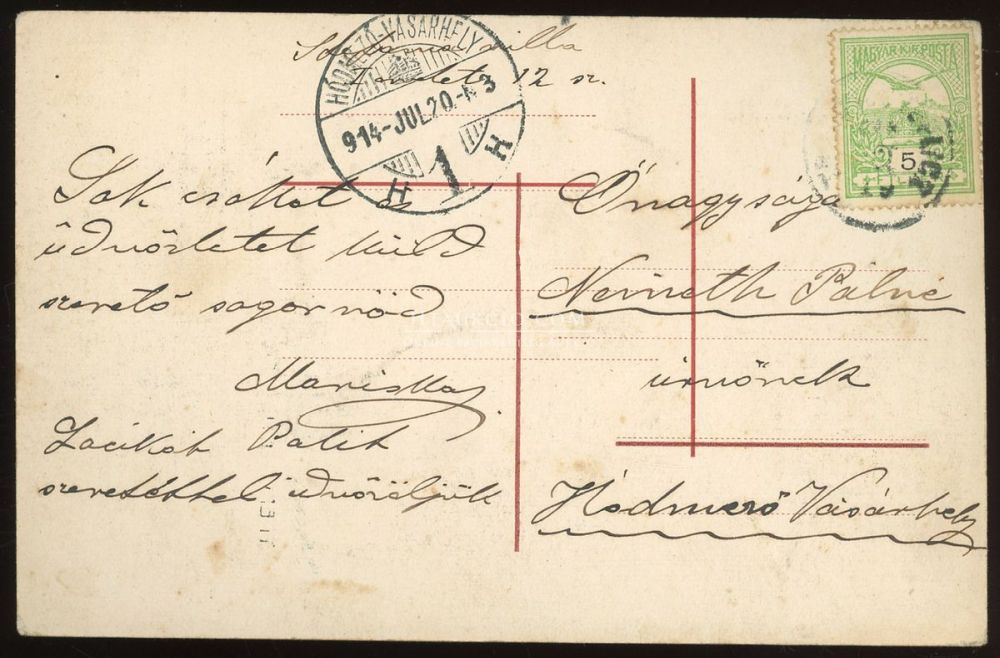 villa
12 sz.
HÓDMEZŐ-VÁSÁRHELY
914-JUL 20.-N 3
H 1 H
MAGYAR KIR. POSTA
5
Sok csókot és
üdvözletet küld
szerető sógornőd
Mariska
Lacikát Palit
szeretettel üdvözöljük
Őnagysága
Németh Pálné
úrnőnek
Hódmező Vásárhely